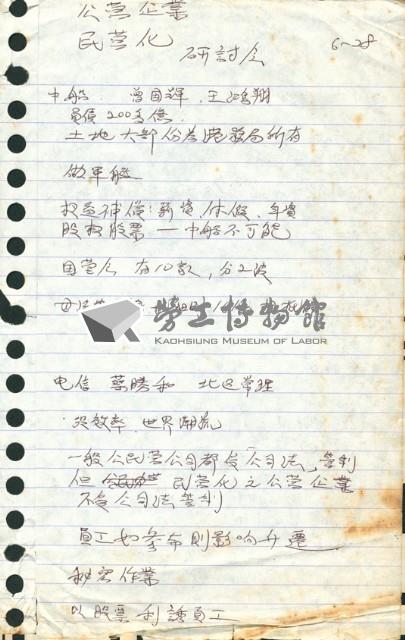 公营企業
民营化
研討会
6-28
中船 曾国輝，王鴻翔
負債 200多億
土地大部份為港務局所有
做軍艦
权益補償：薪資、休假、年資
股权股票 — 中船不可能
国营会 有10款，分2波
勞工博物館
KAOHSIUNG MUSEUM OF LABOR
电信 蔡勝和 北区常理
·沒效率，世界潮流
一般公民营公司都受公司法，管制
但 民营化之公营企業
不受公司法管制
員工如參加則影响升遷
秘密作業
以股票利誘員工